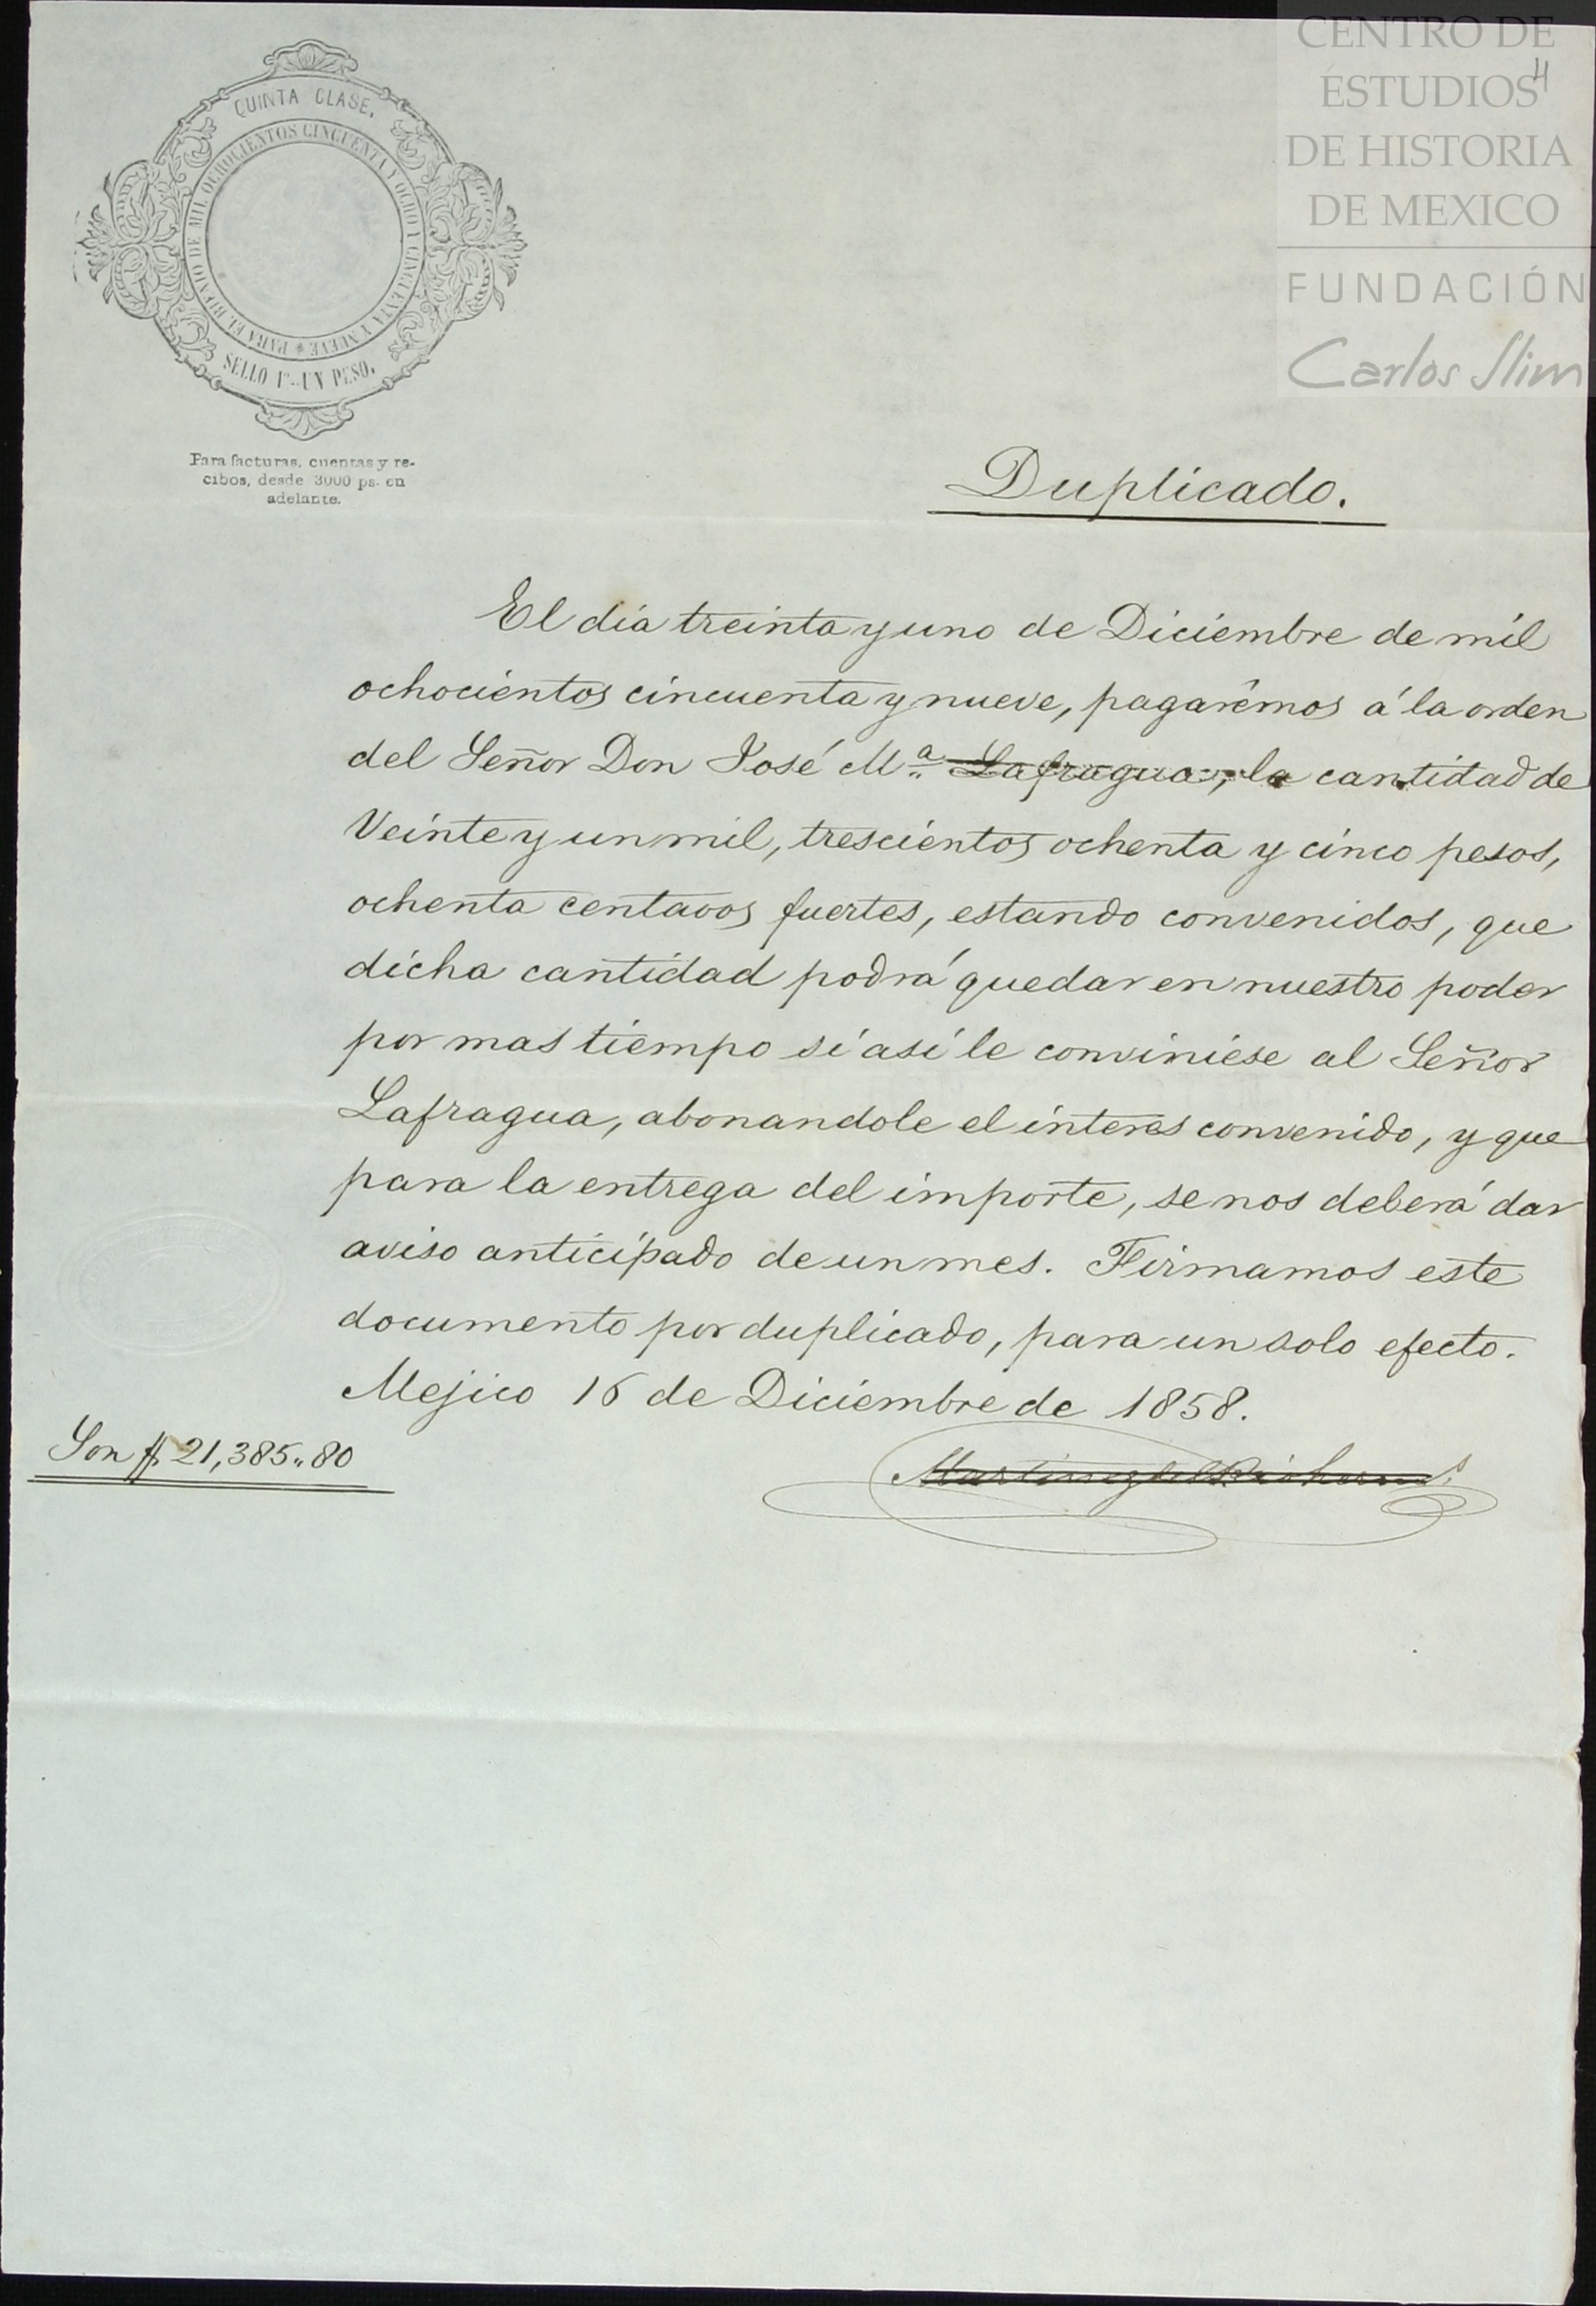 CENTRO DE
ESTUDIOS
DE HISTORIA
DE MEXICO
FUNDACIÓN
Carlos Slim
4
QUINTA CLASE.
PARA EL BIENIO DE MIL OCHOCIENTOS CINCUENTA Y OCHO Y CINCUENTA Y NUEVE
SELLO 1º.. UN PESO.
Para facturas, cuentas y re-
cibos, desde 3000 ps. en
adelante.
Duplicado.
El dia treinta y uno de Diciembre de mil
ochocientos cincuenta y nueve, pagarémos á la orden
del Señor Don José Mª Lafragua, la cantidad de
Veinte y un mil, trescientos ochenta y cinco pesos,
ochenta centavos fuertes, estando convenidos, que
dicha cantidad podrá quedar en nuestro poder
por mas tiempo si así le conviniese al Señor
Lafragua, abonandole el interes convenido, y que
para la entrega del importe, se nos deberá dar
aviso anticipado de un mes. Firmamos este
documento por duplicado, para un solo efecto.
Mejico 16 de Diciembre de 1858.
Son $ 21,385.,80
Martinez del Rio herms